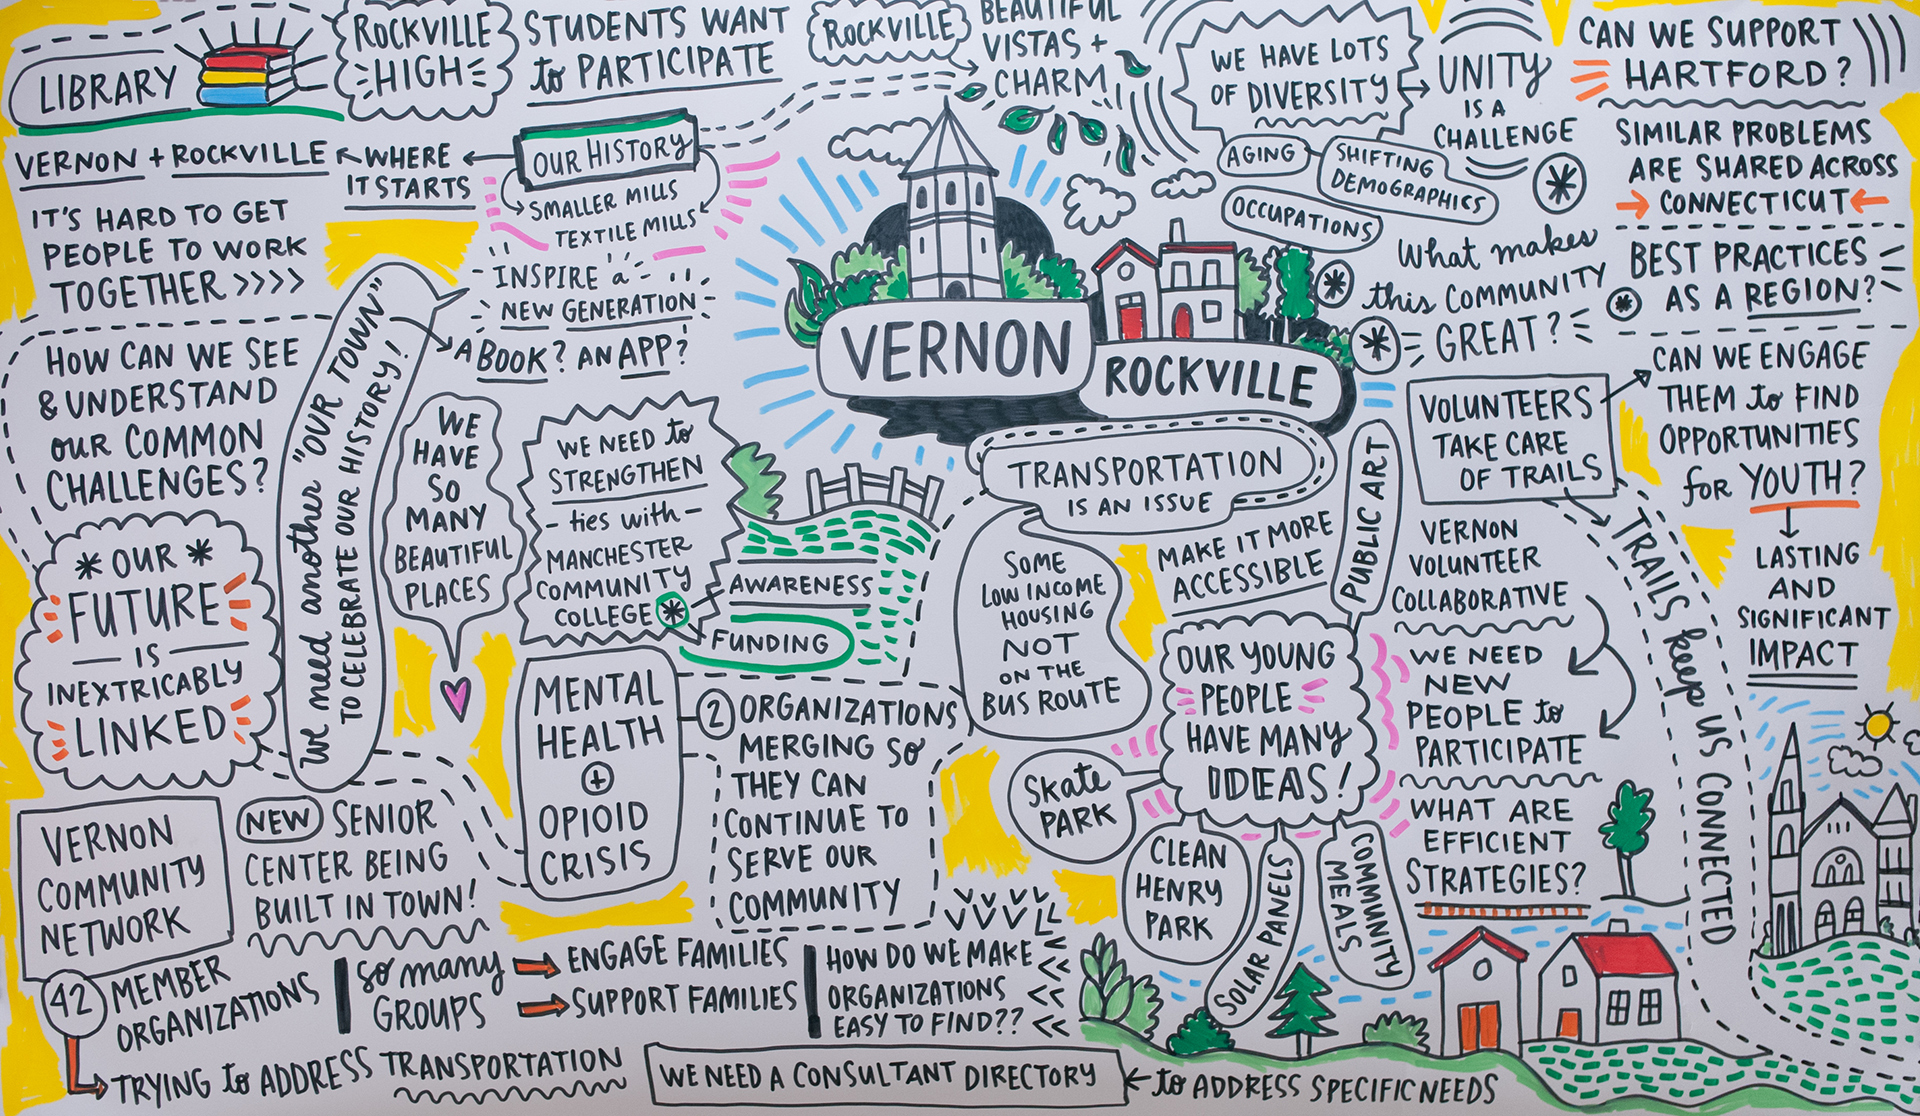 LIBRARY
ROCKVILLE
HIGH
STUDENTS WANT
to PARTICIPATE
ROCKVILLE
BEAUTIFUL
VISTAS +
CHARM
WE HAVE LOTS
OF DIVERSITY
UNITY
IS A
CHALLENGE
AGING
SHIFTING
DEMOGRAPHICS
OCCUPATIONS
CAN WE SUPPORT
HARTFORD?
SIMILAR PROBLEMS
ARE SHARED ACROSS
CONNECTICUT
BEST PRACTICES
AS A REGION?
OUR HISTORY
SMALLER MILLS
TEXTILE MILLS
WHERE
IT STARTS
VERNON + ROCKVILLE
IT'S HARD TO GET
PEOPLE TO WORK
TOGETHER >>>>
INSPIRE a
NEW GENERATION
A BOOK? AN APP?
We need another "OUR TOWN"
TO CELEBRATE OUR HISTORY!
VERNON
ROCKVILLE
What makes
this COMMUNITY
GREAT?
HOW CAN WE SEE
& UNDERSTAND
OUR COMMON
CHALLENGES?
* OUR *
FUTURE
IS
INEXTRICABLY
LINKED
WE
HAVE
SO
MANY
BEAUTIFUL
PLACES
WE NEED to
STRENGTHEN
- ties with -
MANCHESTER
COMMUNITY
COLLEGE *
AWARENESS
FUNDING
TRANSPORTATION
IS AN ISSUE
SOME
LOW INCOME
HOUSING
NOT
ON THE
BUS ROUTE
MAKE IT MORE
ACCESSIBLE
PUBLIC ART
VOLUNTEERS
TAKE CARE
OF TRAILS
CAN WE ENGAGE
THEM to FIND
OPPORTUNITIES
for YOUTH?
LASTING
AND
SIGNIFICANT
IMPACT
TRAILS keep US CONNECTED
VERNON
VOLUNTEER
COLLABORATIVE
WE NEED
NEW
PEOPLE to
PARTICIPATE
WHAT ARE
EFFICIENT
STRATEGIES?
OUR YOUNG
PEOPLE
HAVE MANY
IDEAS!
Skate
PARK
CLEAN
HENRY
PARK
SOLAR PANELS
COMMUNITY
MEALS
MENTAL
HEALTH
+
OPIOID
CRISIS
2 ORGANIZATIONS
MERGING SO
THEY CAN
CONTINUE TO
SERVE OUR
COMMUNITY
VERNON
COMMUNITY
NETWORK
NEW SENIOR
CENTER BEING
BUILT IN TOWN!
42 MEMBER
ORGANIZATIONS
SO many
GROUPS
ENGAGE FAMILIES
SUPPORT FAMILIES
HOW DO WE MAKE
ORGANIZATIONS
EASY TO FIND??
TRYING to ADDRESS TRANSPORTATION
WE NEED A CONSULTANT DIRECTORY
to ADDRESS SPECIFIC NEEDS